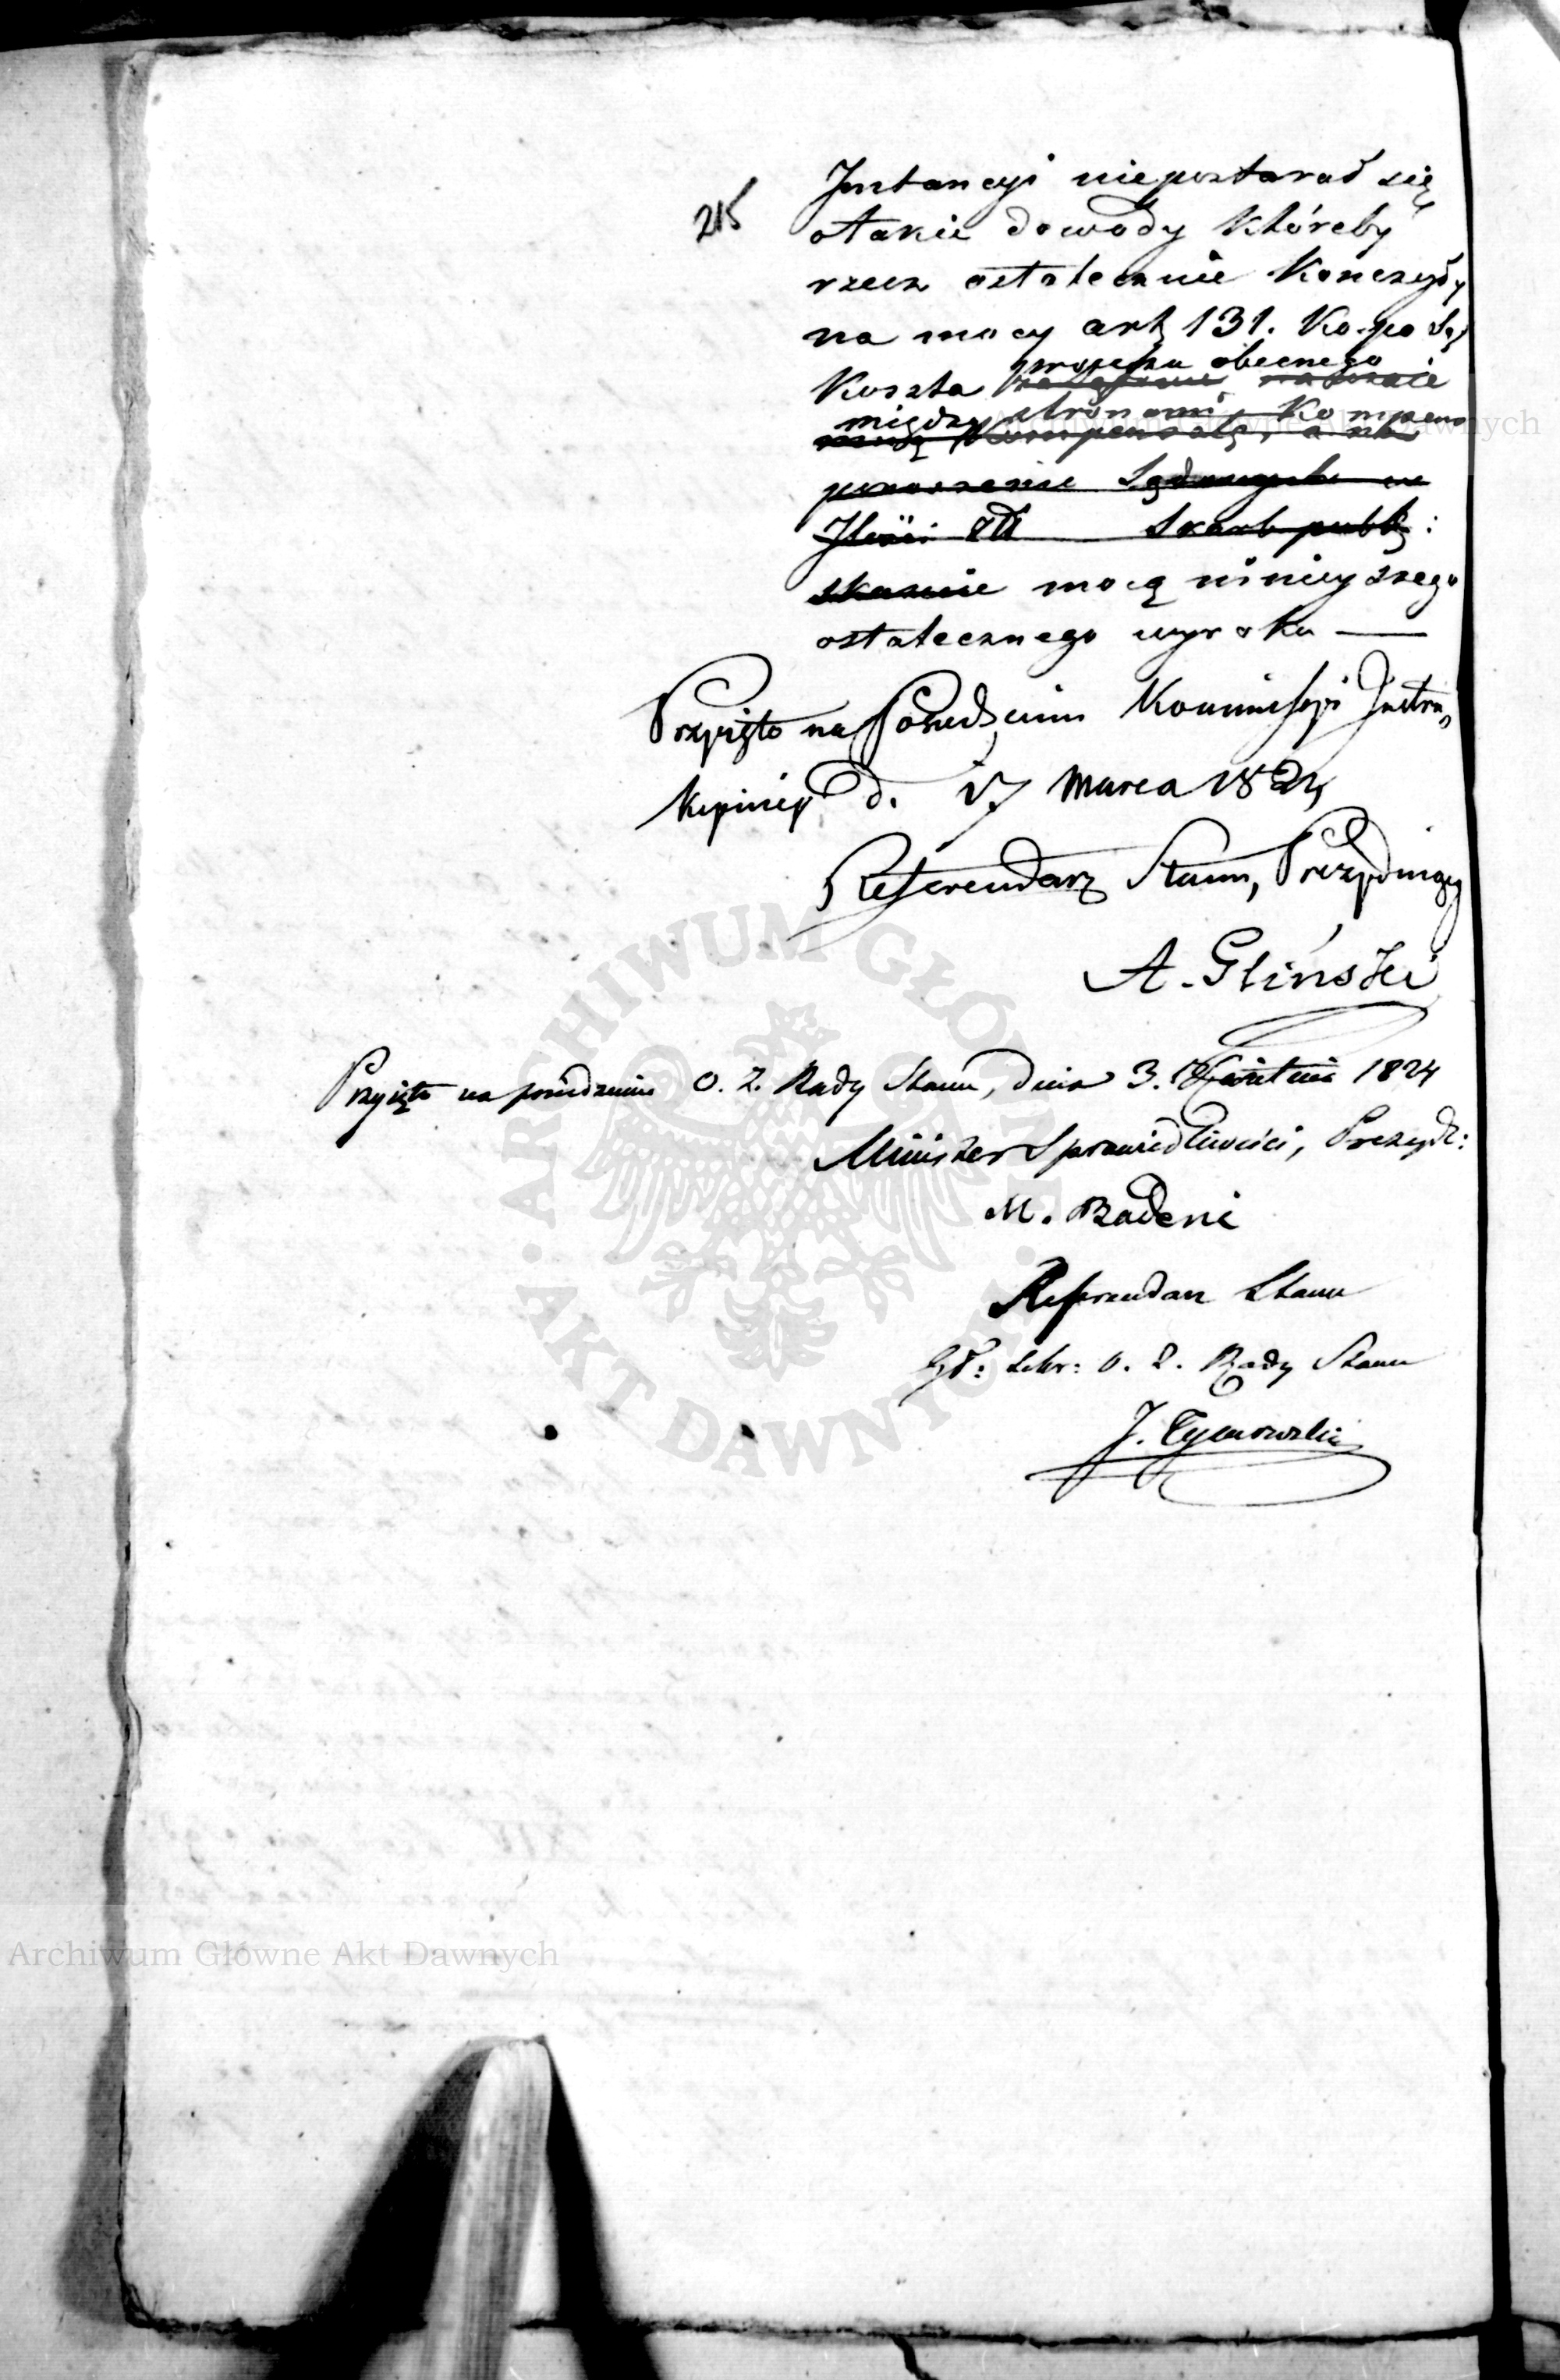 215
Instancyi niepostarał się
otakie dowody któreby
rzecz ostatecznie kończyły
na mocy art 131. Ko. po Są
procesu obecnego
Koszta
między stronami, Kompens
Kompensatę, a na
ponoszenie Sądowych w
Ilości złł Skarb publ:
skazuie mocą ninieyszego
ostatecznego wyroku —
Przyięto na Posiedzeniu Kommissyi Instru„
kcyiney d. 17 Marca 1824
Referendarz Stanu, Prezyduiący
A. Gliński
Przyięto na posiedzeniu O. Z. Rady Stanu, dnia 3. Kwietnia 1824
Minister Sprawiedliwości, Prezyd:
M. Badeni
Referendarz Stanu
Gł: Sekr: O. Z. Rady Stanu
J. Tymowski
ARCHIWUM GŁÓWNE AKT DAWNYCH
Archiwum Główne Akt Dawnych
Archiwum Główne Akt Dawnych